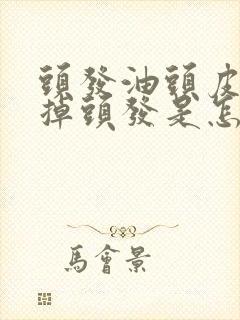 頭發油頭皮
掉頭發是怎
馬會景